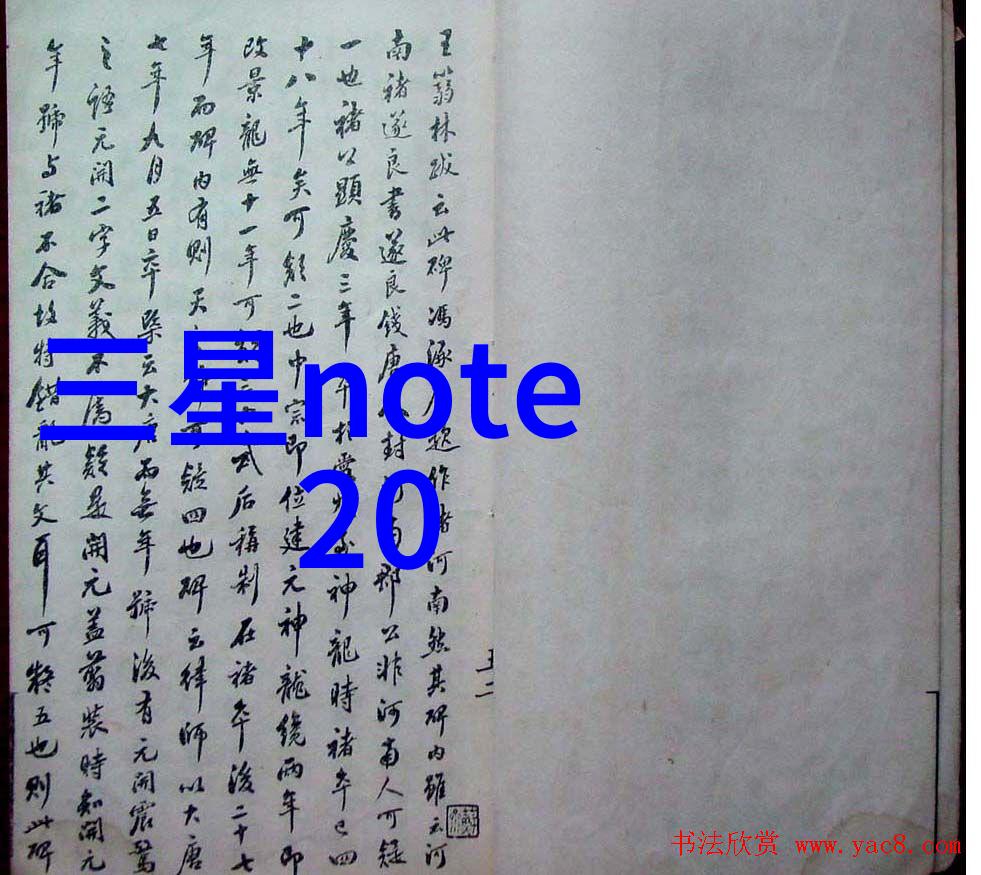 王蒻林跋云此碑馮涿 起作者河南然其碑内雖云河
南褚遂良書遂良錢唐 封河南郡公非河南人可疑
一也褚公顯慶三年 神龍時褚卒已四
十八年矣可疑二也中宗即位建元神龍纔兩年即
改景龍無十一年可 武后稱制在褚卒後二十七
年而碑内有則天 可疑四也碑云律師以大唐
七年九月五日卒 云大唐而無年號後有元開震驚
之語元開二字文義不 疑是開元蓋蒻裝時知開元
年號与褚不合故特錯亂其文耳可疑五也則此碑
三星note
20
書法欣賞 www.yac8.com